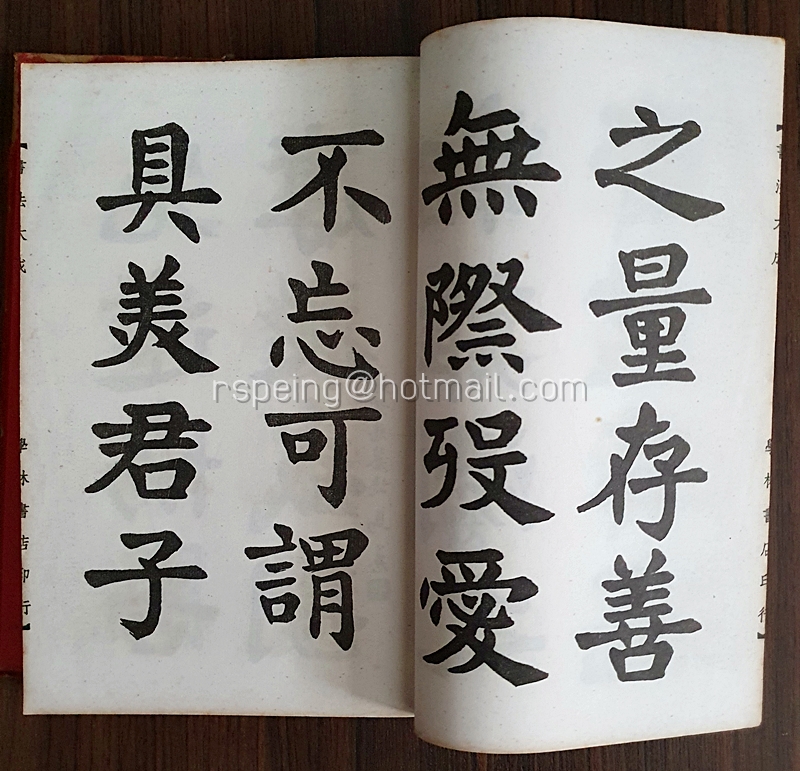 【書法大成
學林書店印行】
之量存善
無際歿愛
不忘可謂
具美君子
【書法大成
學林書店印行】
rspeing@hotmail.com